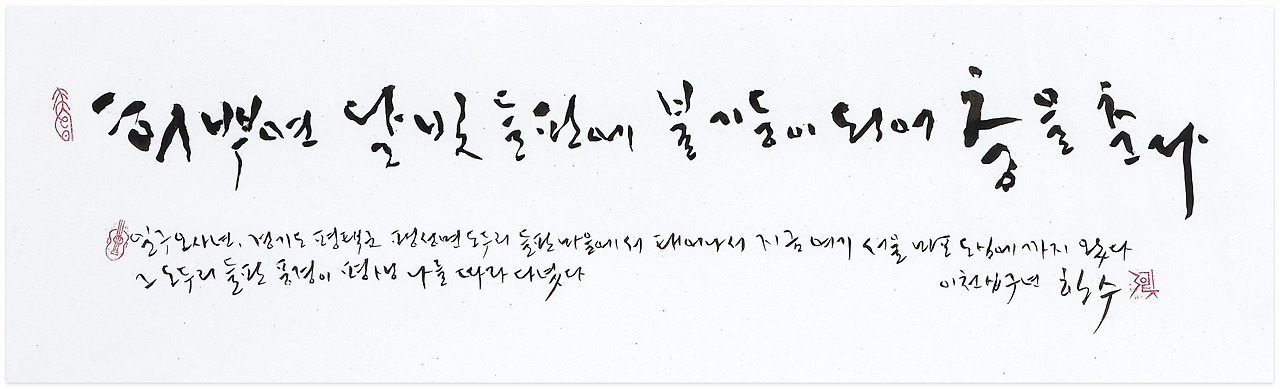 희뿌연 달빛 들판에 불기둥이 되어 춤을 춘다
일구오사년, 경기도 평택군 팽성면 도두리 들판 마을에서 태어나서 지금 여기 서울 마포 도심에까지 왔다
그 도두리 들판 풍경이 평생 나를 따라 다녔다
이천십구년 한수